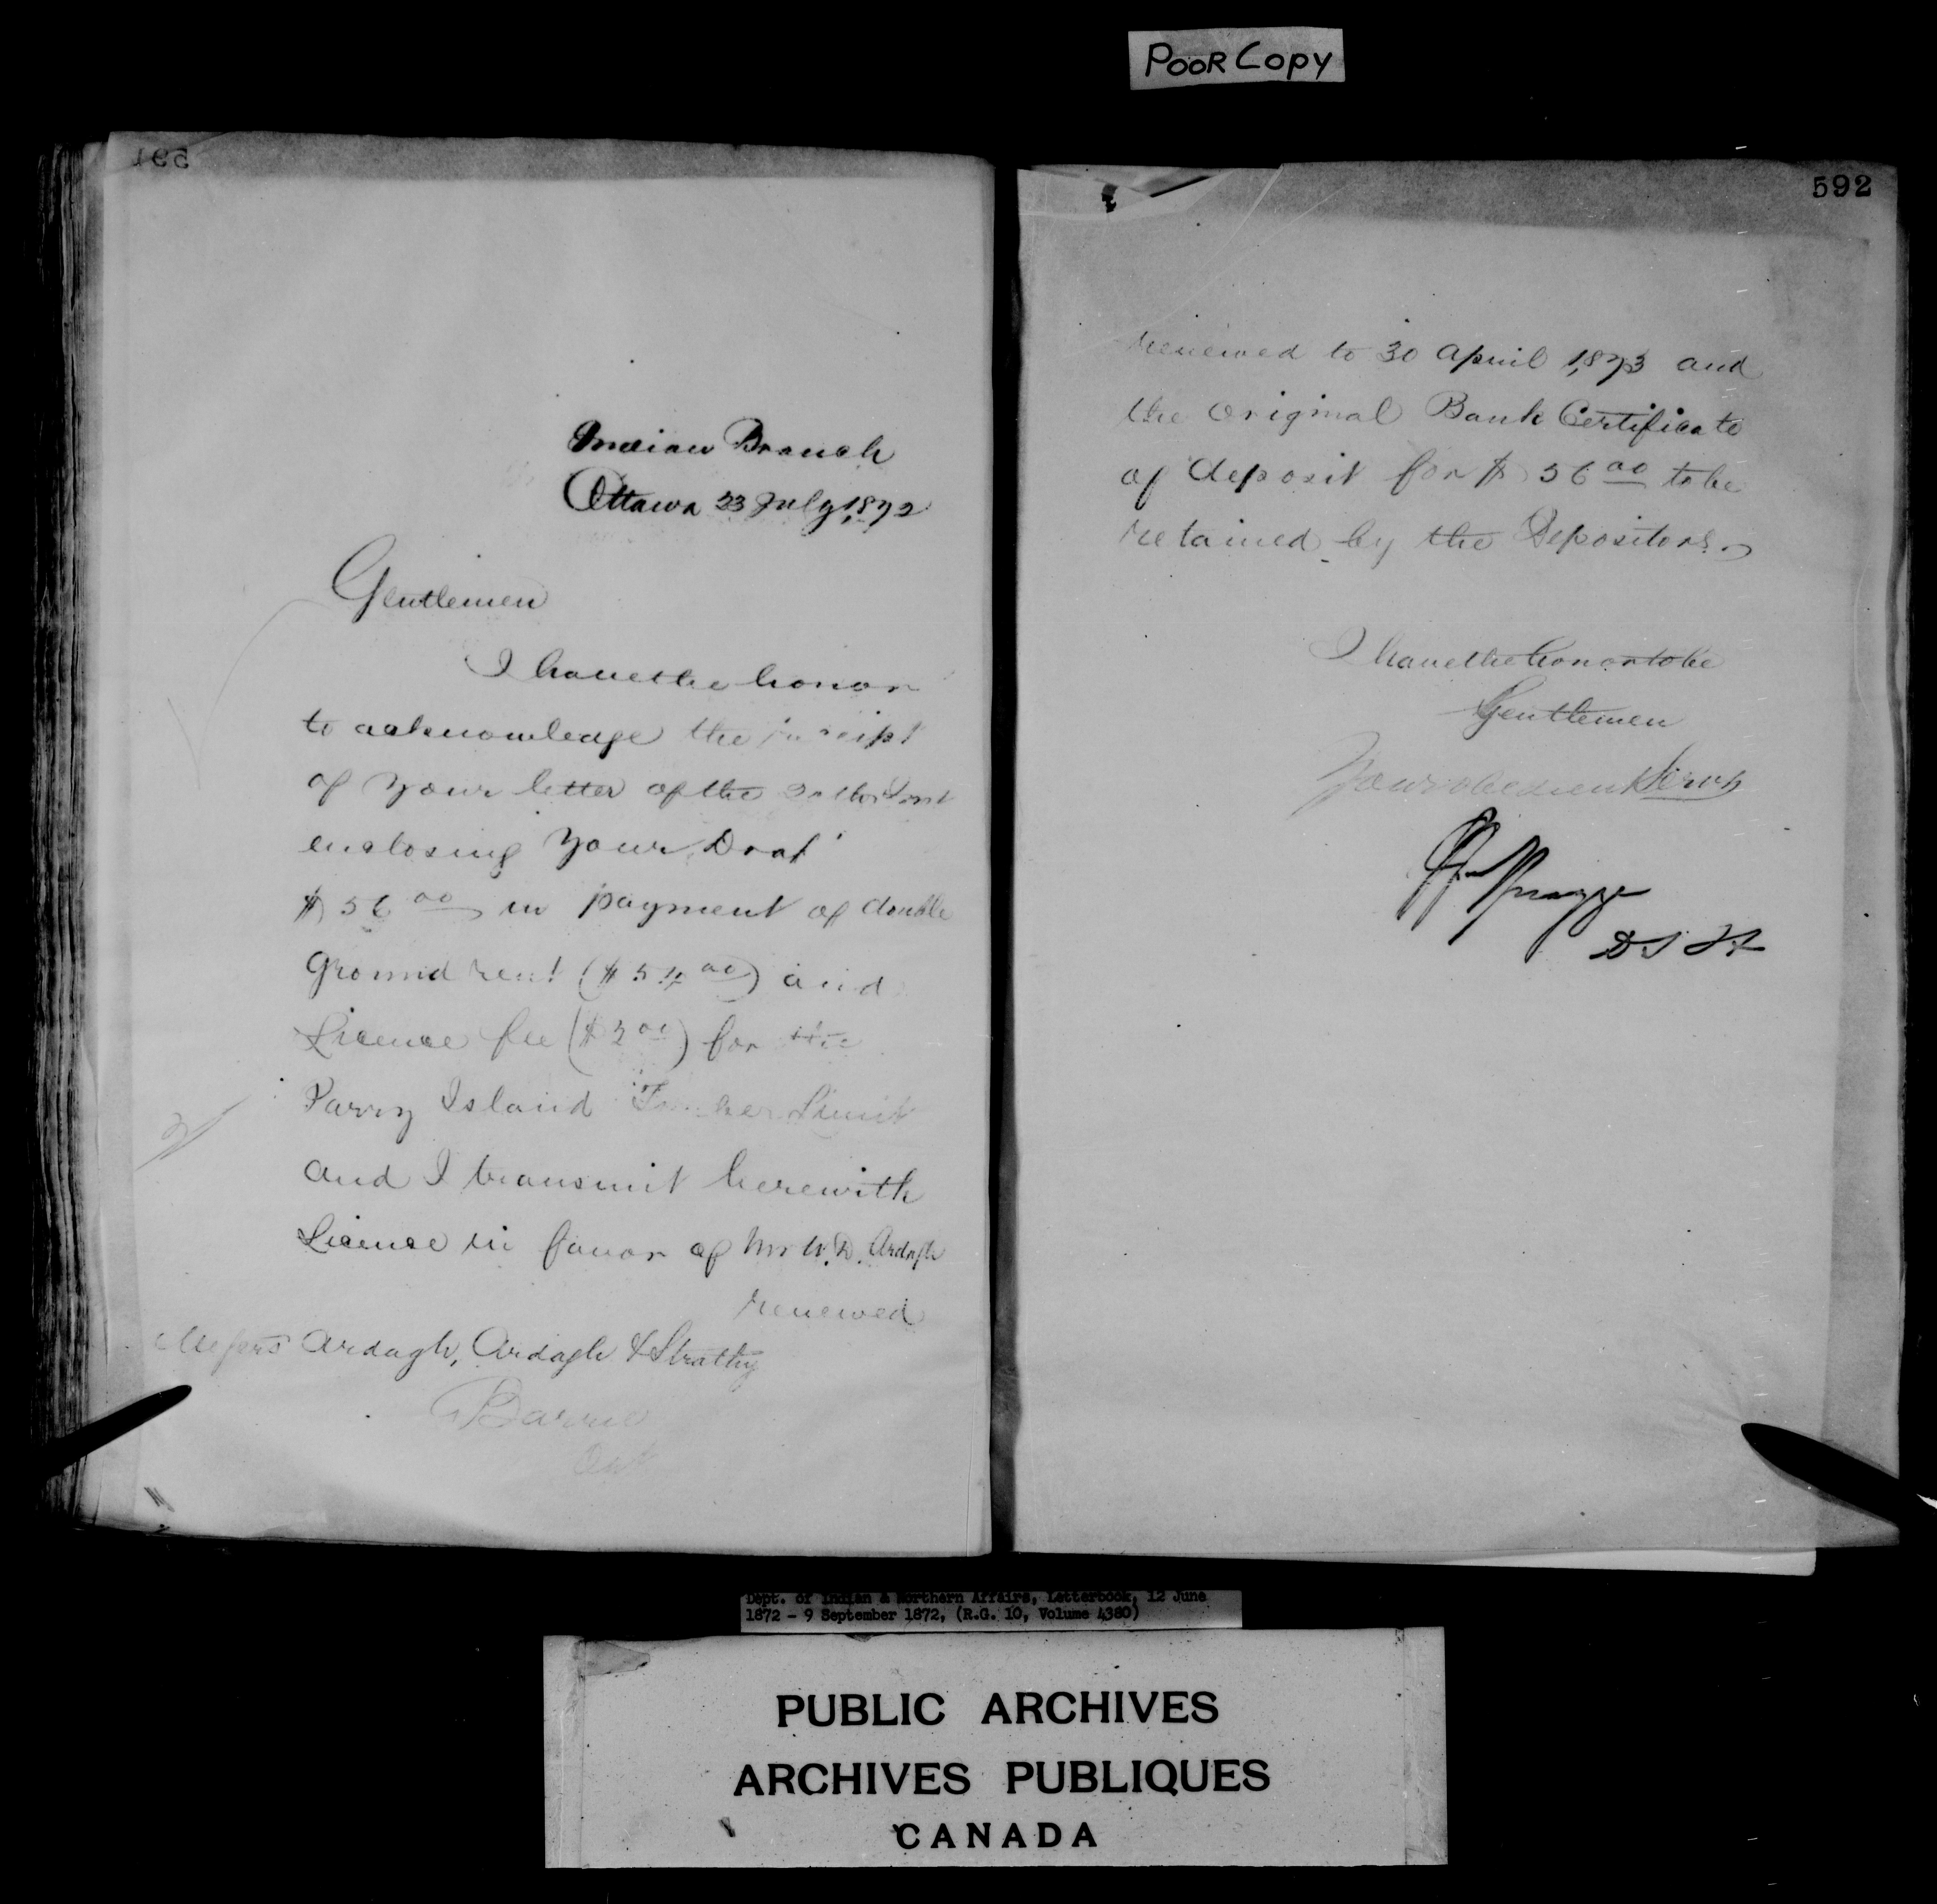 POOR COPY
591
Indian Branch
Ottawa 23 July 1872
Gentlemen
I have the honor
to acknowledge the receipt
of your letter of the inst
enclosing your Draft
$56 00 in payment of double
Ground rent ($54 00) and
License fee ($2 00) for the
Parry Island Timber Limit
and I transmit herewith
License in favor of Mr W. D. Ardagh
renewed
Messrs Ardagh, Ardagh & Strathy
Barrie
Ont
592
renewed to 30 April 1873 and
the Original Bank Certificate
of deposit for $56 00 to be
retained by the Depositors.
I have the honor to be
Gentlemen
Your obedient Servt
Spragge
D S I A
Dept. of Indian & Northern Affairs, Letterbook, 12 June
1872 - 9 September 1872, (R.G. 10, Volume 4380)
PUBLIC ARCHIVES
ARCHIVES PUBLIQUES
CANADA